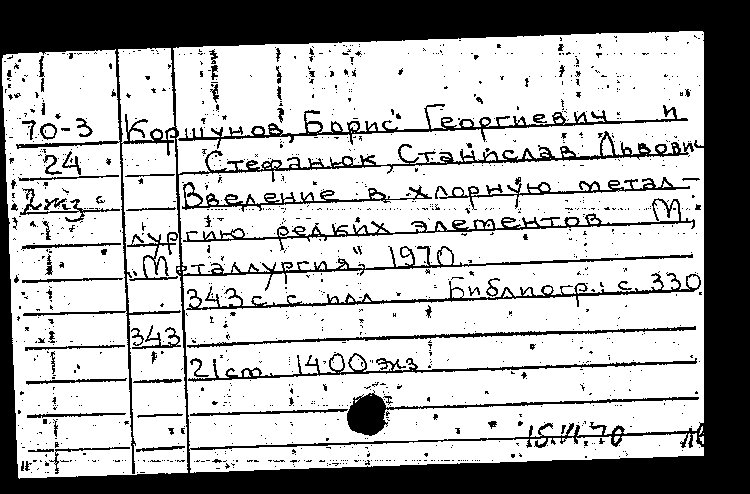 70-3 Коршунов, Борис Георгиевич и
24 Стефанюк, Станислав Львович
2 экз. Введение в хлорную метал-
лургию редких элементов М.,
"Металлургия", 1970.
343 с. с илл. Библиогр.: с. 330
343
21 см. 1400 экз
15.VI.70